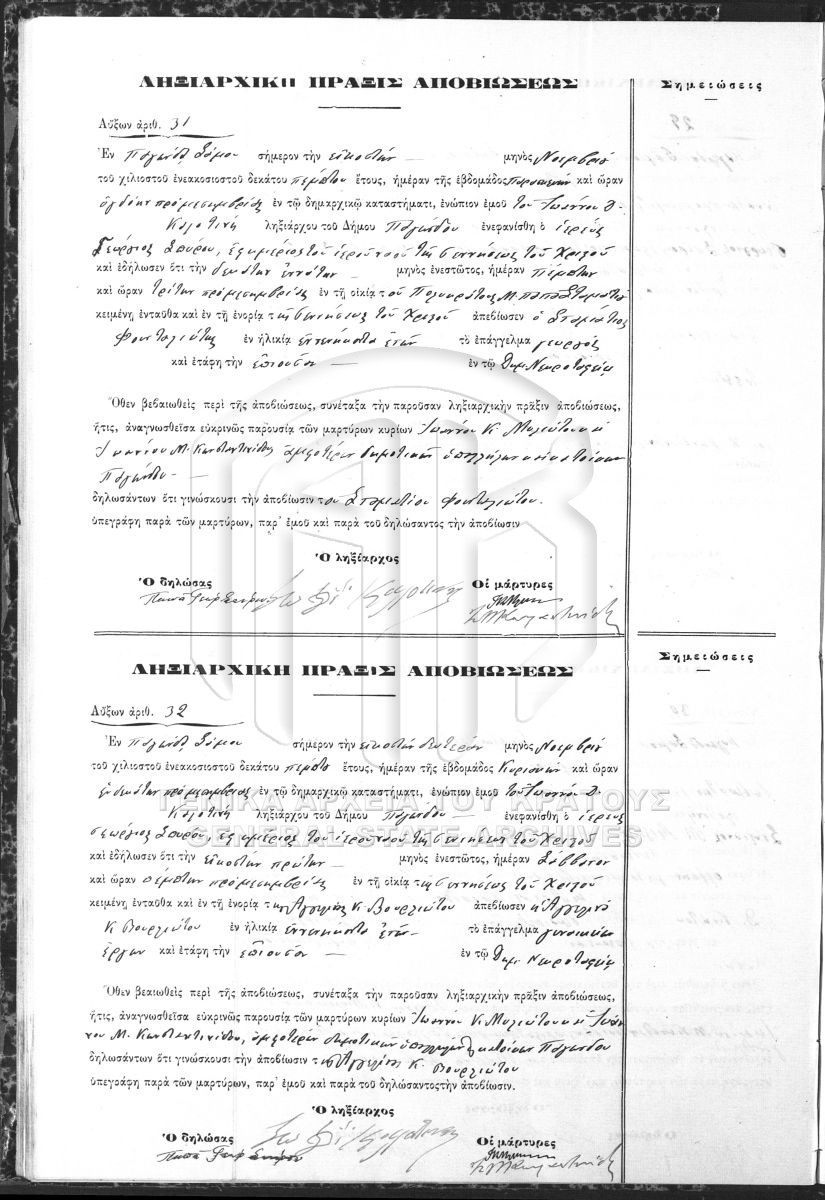 ΛΗΞΙΑΡΧΙΚΗ ΠΡΑΞΙΣ ΑΠΟΒΙΩΣΕΩΣ
Σημειώσεις
Αὔξων ἀριθ. 31
Ἐν Παγώνδᾳ Σάμου σήμερον τὴν εἰκοστὴν μηνὸς Νοεμβρίου
τοῦ χιλιοστοῦ ἐνεακοσιοστοῦ δεκάτου πέμπτου ἔτους, ἡμέραν τῆς ἑβδομάδος Παρασκευὴν καὶ ὥραν
ὀγδόην πρὸ μεσημβρίας ἐν τῷ δημαρχικῷ καταστήματι, ἐνώπιον ἐμοῦ τοῦ Ἰωάννου Δ.
ληξιάρχου τοῦ Δήμου Παγώνδου ἐνεφανίσθη ὁ ἱερεὺς
Γεώργιος Σπύρου, ἐφημέριος τοῦ ἱεροῦ ναοῦ τῆς Γεννήσεως τοῦ Χριστοῦ
καὶ ἐδήλωσεν ὅτι τὴν δεκάτην ἐννάτην μηνὸς ἐνεστῶτος, ἡμέραν Πέμπτην
καὶ ὥραν τρίτην πρὸ μεσημβρίας ἐν τῇ οἰκίᾳ τοῦ Πολυκράτους Μ. Παπασταματίου
κειμένῃ ἐνταῦθα καὶ ἐν τῇ ἐνορίᾳ τῆς Γεννήσεως τοῦ Χριστοῦ ἀπεβίωσεν ὁ Σταμάτιος
ἐν ἡλικίᾳ ἐννενήκοντα ἐτῶν τὸ ἐπάγγελμα γεωργὸς
καὶ ἐτάφη τὴν ἐπιοῦσαν ἐν τῷ Δημ. Νεκροταφείῳ
Ὅθεν βεβαιωθεὶς περὶ τῆς ἀποβιώσεως, συνέταξα τὴν παροῦσαν ληξιαρχικὴν πρᾶξιν ἀποβιώσεως,
ἥτις, ἀναγνωσθεῖσα εὐκρινῶς παρουσίᾳ τῶν μαρτύρων κυρίων Ἰωάννου Κ.
Ἰωάννου Μ. Κωνσταντινίδη ἀμφοτέρων δημοτικῶν ὑπαλλήλων κατοίκων
Παγώνδου
δηλωσάντων ὅτι γινώσκουσι τὴν ἀποβίωσιν τοῦ Σταματίου
ὑπεγράφη παρὰ τῶν μαρτύρων, παρ' ἐμοῦ καὶ παρὰ τοῦ δηλώσαντος τὴν ἀποβίωσιν
Ὁ ληξίαρχος
Ὁ δηλώσας Οἱ μάρτυρες
Παπᾶ Γεώρ Σπύρου
ΛΗΞΙΑΡΧΙΚΗ ΠΡΑΞΙΣ ΑΠΟΒΙΩΣΕΩΣ
Σημειώσεις
Αὔξων ἀριθ. 32
Ἐν Παγώνδᾳ Σάμου σήμερον τὴν εἰκοστὴν δευτέραν μηνὸς Νοεμβρίου
τοῦ χιλιοστοῦ ἐνεακοσιοστοῦ δεκάτου πέμπτου ἔτους, ἡμέραν τῆς ἑβδομάδος Κυριακὴν καὶ ὥραν
ἑνδεκάτην πρὸ μεσημβρίας ἐν τῷ δημαρχικῷ καταστήματι, ἐνώπιον ἐμοῦ τοῦ Ἰωάννου Δ.
ΓΕΝΙΚΑ ΑΡΧΕΙΑ ΤΟΥ ΚΡΑΤΟΥΣ
ληξιάρχου τοῦ Δήμου Παγώνδου ἐνεφανίσθη ὁ ἱερεὺς
Γεώργιος Σπύρου, ἐφημέριος τοῦ ἱεροῦ ναοῦ τῆς Γεννήσεως τοῦ Χριστοῦ
GENERAL STATE ARCHIVES
καὶ ἐδήλωσεν ὅτι τὴν εἰκοστὴν πρώτην μηνὸς ἐνεστῶτος, ἡμέραν Σάββατον
καὶ ὥραν πέμπτην πρὸ μεσημβρίας ἐν τῇ οἰκίᾳ τῆς Γεννήσεως τοῦ Χριστοῦ
κειμένῃ ἐνταῦθα καὶ ἐν τῇ ἐνορίᾳ τῆς Κ. Βουρλιώτου ἀπεβίωσεν ἡ
Κ. Βουρλιώτου ἐν ἡλικίᾳ ἐννενήκοντα ἐτῶν τὸ ἐπάγγελμα γυναικείων
ἔργων καὶ ἐτάφη τὴν ἐπιοῦσαν ἐν τῷ Δημ. Νεκροταφείῳ
Ὅθεν βεαιωθεὶς περὶ τῆς ἀποβιώσεως, συνέταξα τὴν παροῦσαν ληξιαρχικὴν πρᾶξιν ἀποβιώσεως,
ἥτις, ἀναγνωσθεῖσα εὐκρινῶς παρουσίᾳ τῶν μαρτύρων κυρίων Ἰωάννου Κ. Ἰωάν
νου Μ. Κωνσταντινίδου, ἀμφοτέρων δημοτικῶν ὑπαλλήλων κατοίκων Παγώνδου
δηλωσάντων ὅτι γινώσκουσι τὴν ἀποβίωσιν τῆς Κ. Βουρλιώτου
ὑπεγράφη παρὰ τῶν μαρτύρων, παρ' ἐμοῦ καὶ παρὰ τοῦ δηλώσαντος τὴν ἀποβίωσιν.
Ὁ ληξίαρχος
Ὁ δηλώσας Οἱ μάρτυρες
Παπᾶ Γεώρ Σπύρου